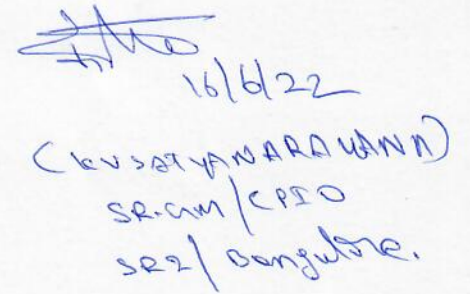 16/6/22
(KV SATYANARAYANA)
SR.GM/CPIO
SR2/Bangalore.